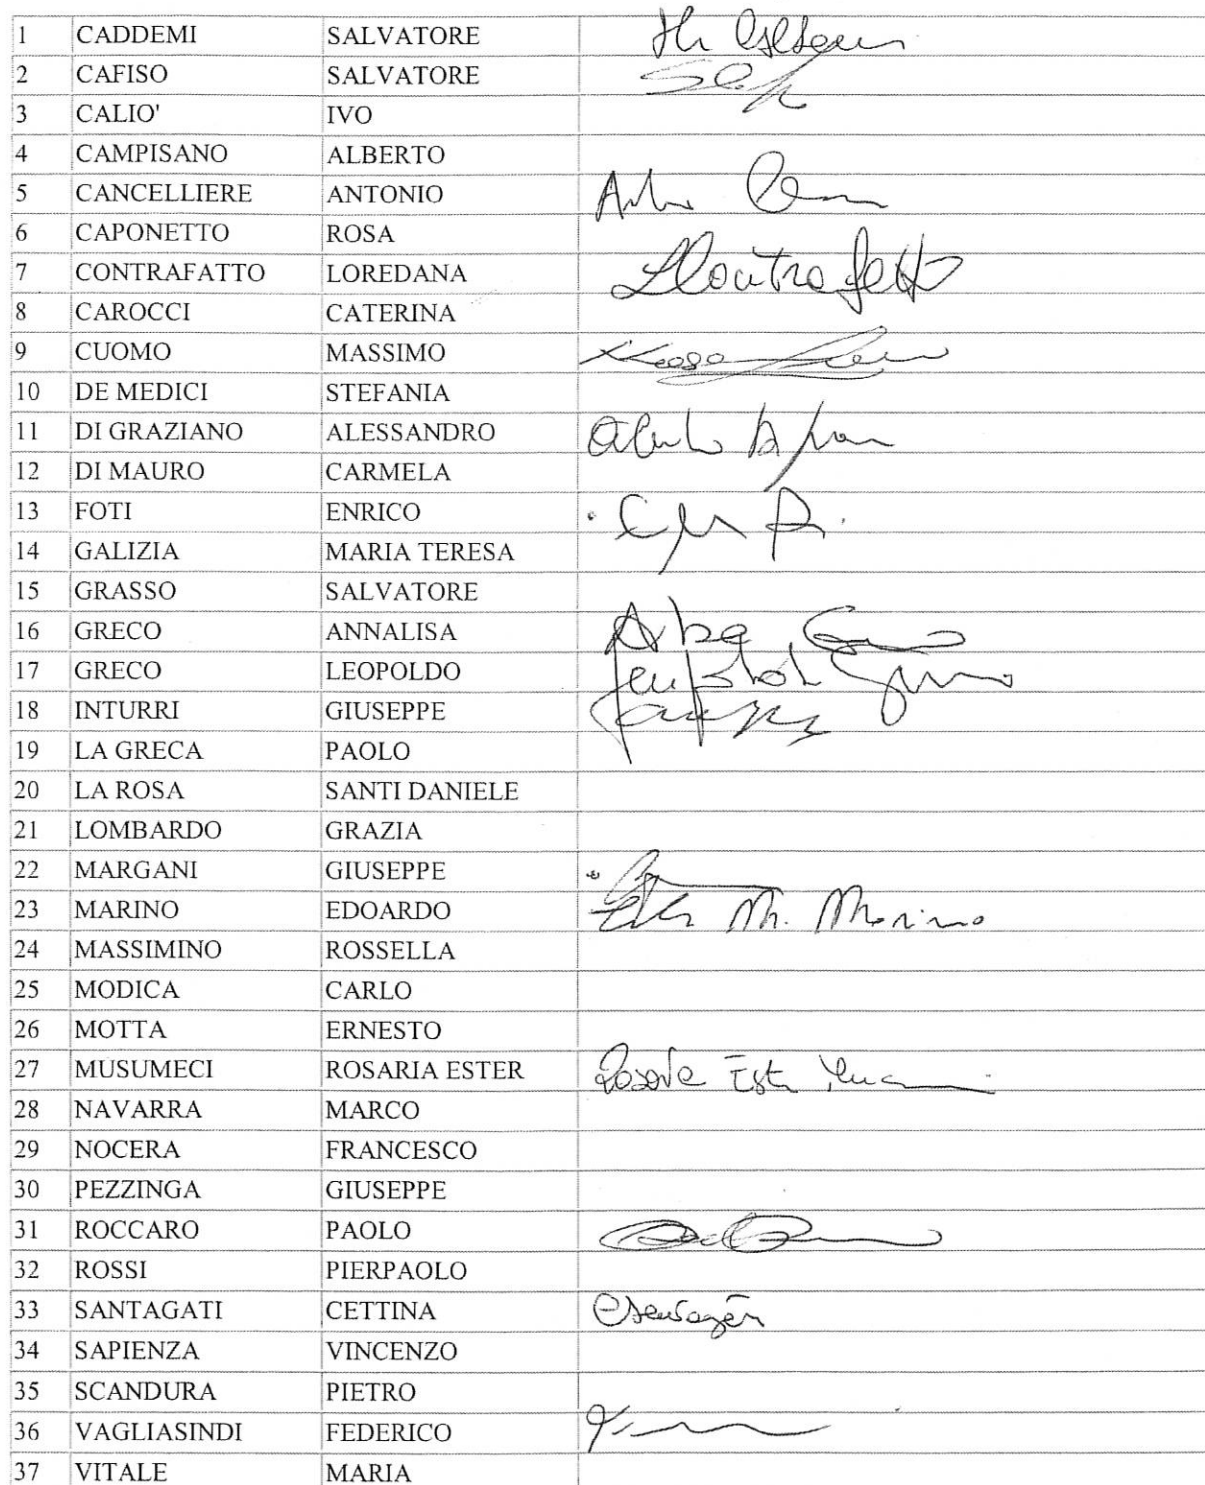 1 CADDEMI SALVATORE
2 CAFISO SALVATORE
3 CALIO' IVO
4 CAMPISANO ALBERTO
5 CANCELLIERE ANTONIO
6 CAPONETTO ROSA
7 CONTRAFATTO LOREDANA LContrafatto
8 CAROCCI CATERINA
9 CUOMO MASSIMO
10 DE MEDICI STEFANIA
11 DI GRAZIANO ALESSANDRO
12 DI MAURO CARMELA
13 FOTI ENRICO
14 GALIZIA MARIA TERESA
15 GRASSO SALVATORE
16 GRECO ANNALISA
17 GRECO LEOPOLDO
18 INTURRI GIUSEPPE
19 LA GRECA PAOLO
20 LA ROSA SANTI DANIELE
21 LOMBARDO GRAZIA
22 MARGANI GIUSEPPE
23 MARINO EDOARDO M. Marino
24 MASSIMINO ROSSELLA
25 MODICA CARLO
26 MOTTA ERNESTO
27 MUSUMECI ROSARIA ESTER
28 NAVARRA MARCO
29 NOCERA FRANCESCO
30 PEZZINGA GIUSEPPE
31 ROCCARO PAOLO
32 ROSSI PIERPAOLO
33 SANTAGATI CETTINA
34 SAPIENZA VINCENZO
35 SCANDURA PIETRO
36 VAGLIASINDI FEDERICO
37 VITALE MARIA